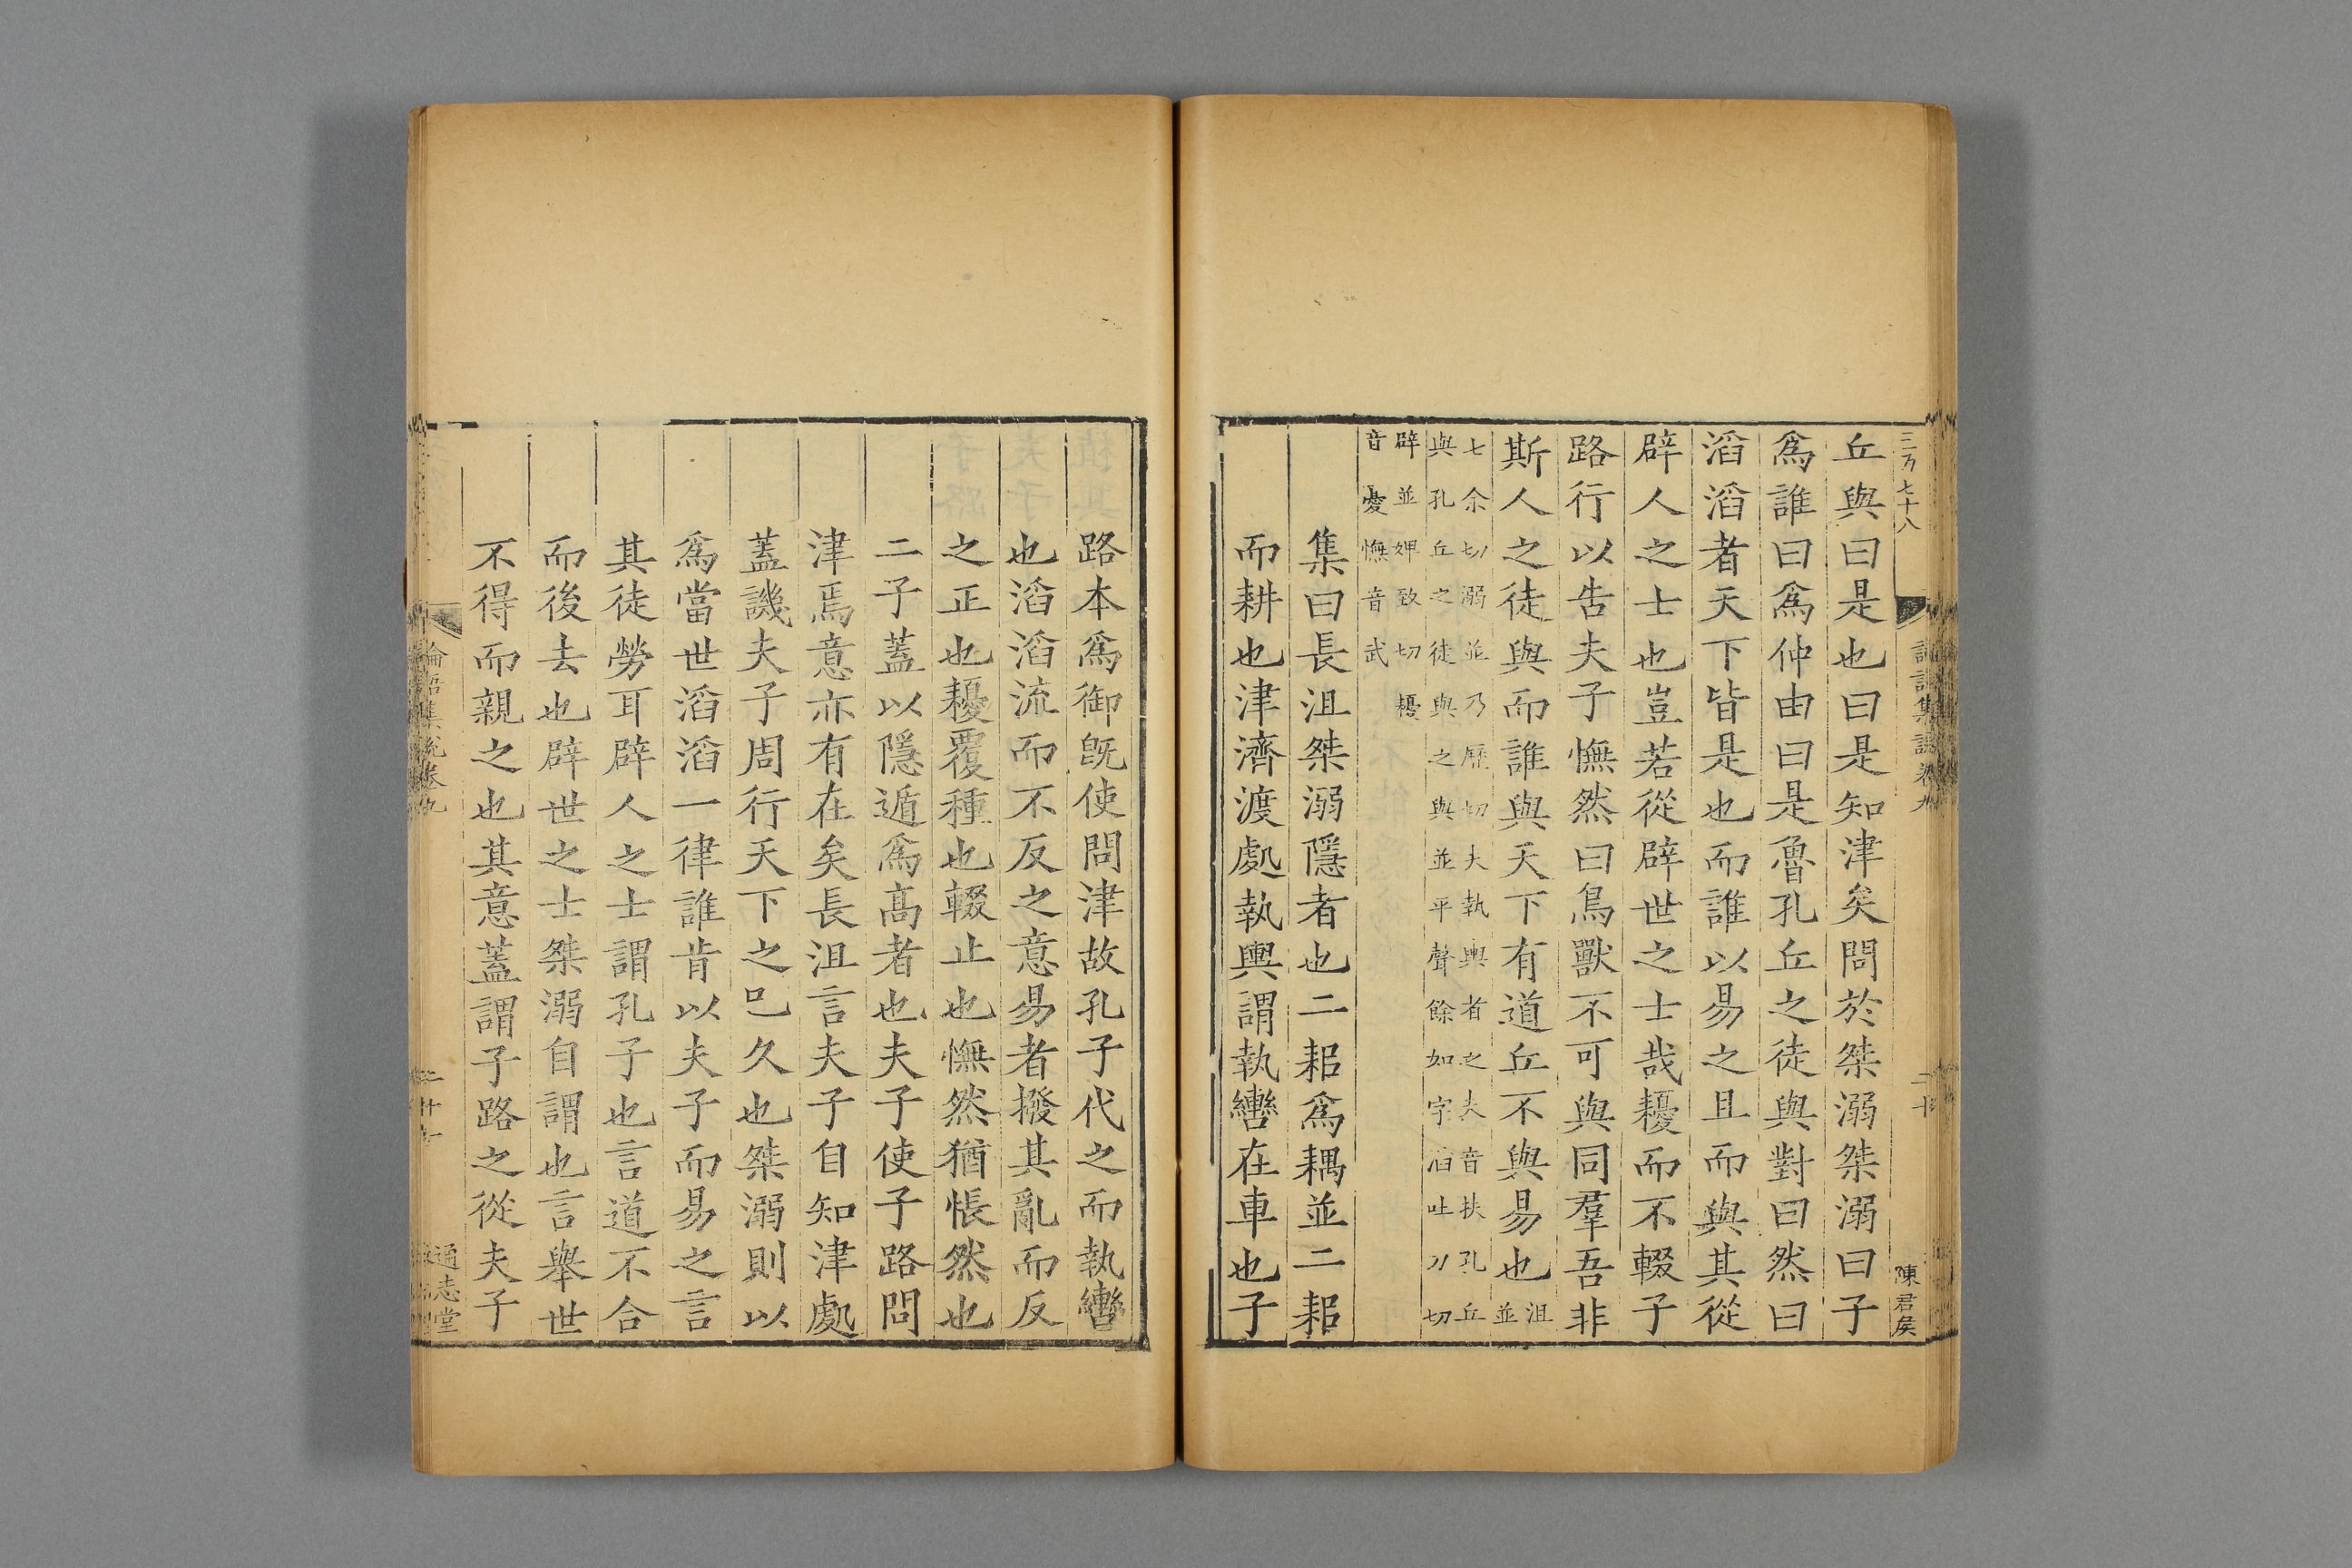 丘與曰是也曰是知津矣問於桀溺桀溺曰子
爲誰曰爲仲由曰是魯孔丘之徒與對曰然曰
滔滔者天下皆是也而誰以易之且而與其從
辟人之士也豈若從辟世之士哉耰而不輟子
路行以告夫子憮然曰鳥獸不可與同羣吾非
斯人之徒與而誰與天下有道丘不與易也沮
並
七余切溺並乃歷切夫執輿者之夫音扶孔丘
與孔丘之徒與之與並平聲餘如字滔吐刀切
辟並婢致切耰
音憂憮音武
集曰長沮桀溺隱者也二耜爲耦並二耜
而耕也津濟渡處執輿謂執轡在車也子
路本爲御旣使問津故孔子代之而執轡
也滔滔流而不反之意易者撥其亂而反
之正也耰覆種也輟止也憮然猶悵然也
二子蓋以隱遁爲高者也夫子使子路問
津焉意亦有在矣長沮言夫子自知津處
蓋譏夫子周行天下之已久也桀溺則以
爲當世滔滔一律誰肯以夫子而易之言
其徒勞耳辟人之士謂孔子也言道不合
而後去也辟世之士桀溺自謂也言舉世
不得而親之也其意蓋謂子路之從夫子
論語集說卷九
通志堂
陳君矦